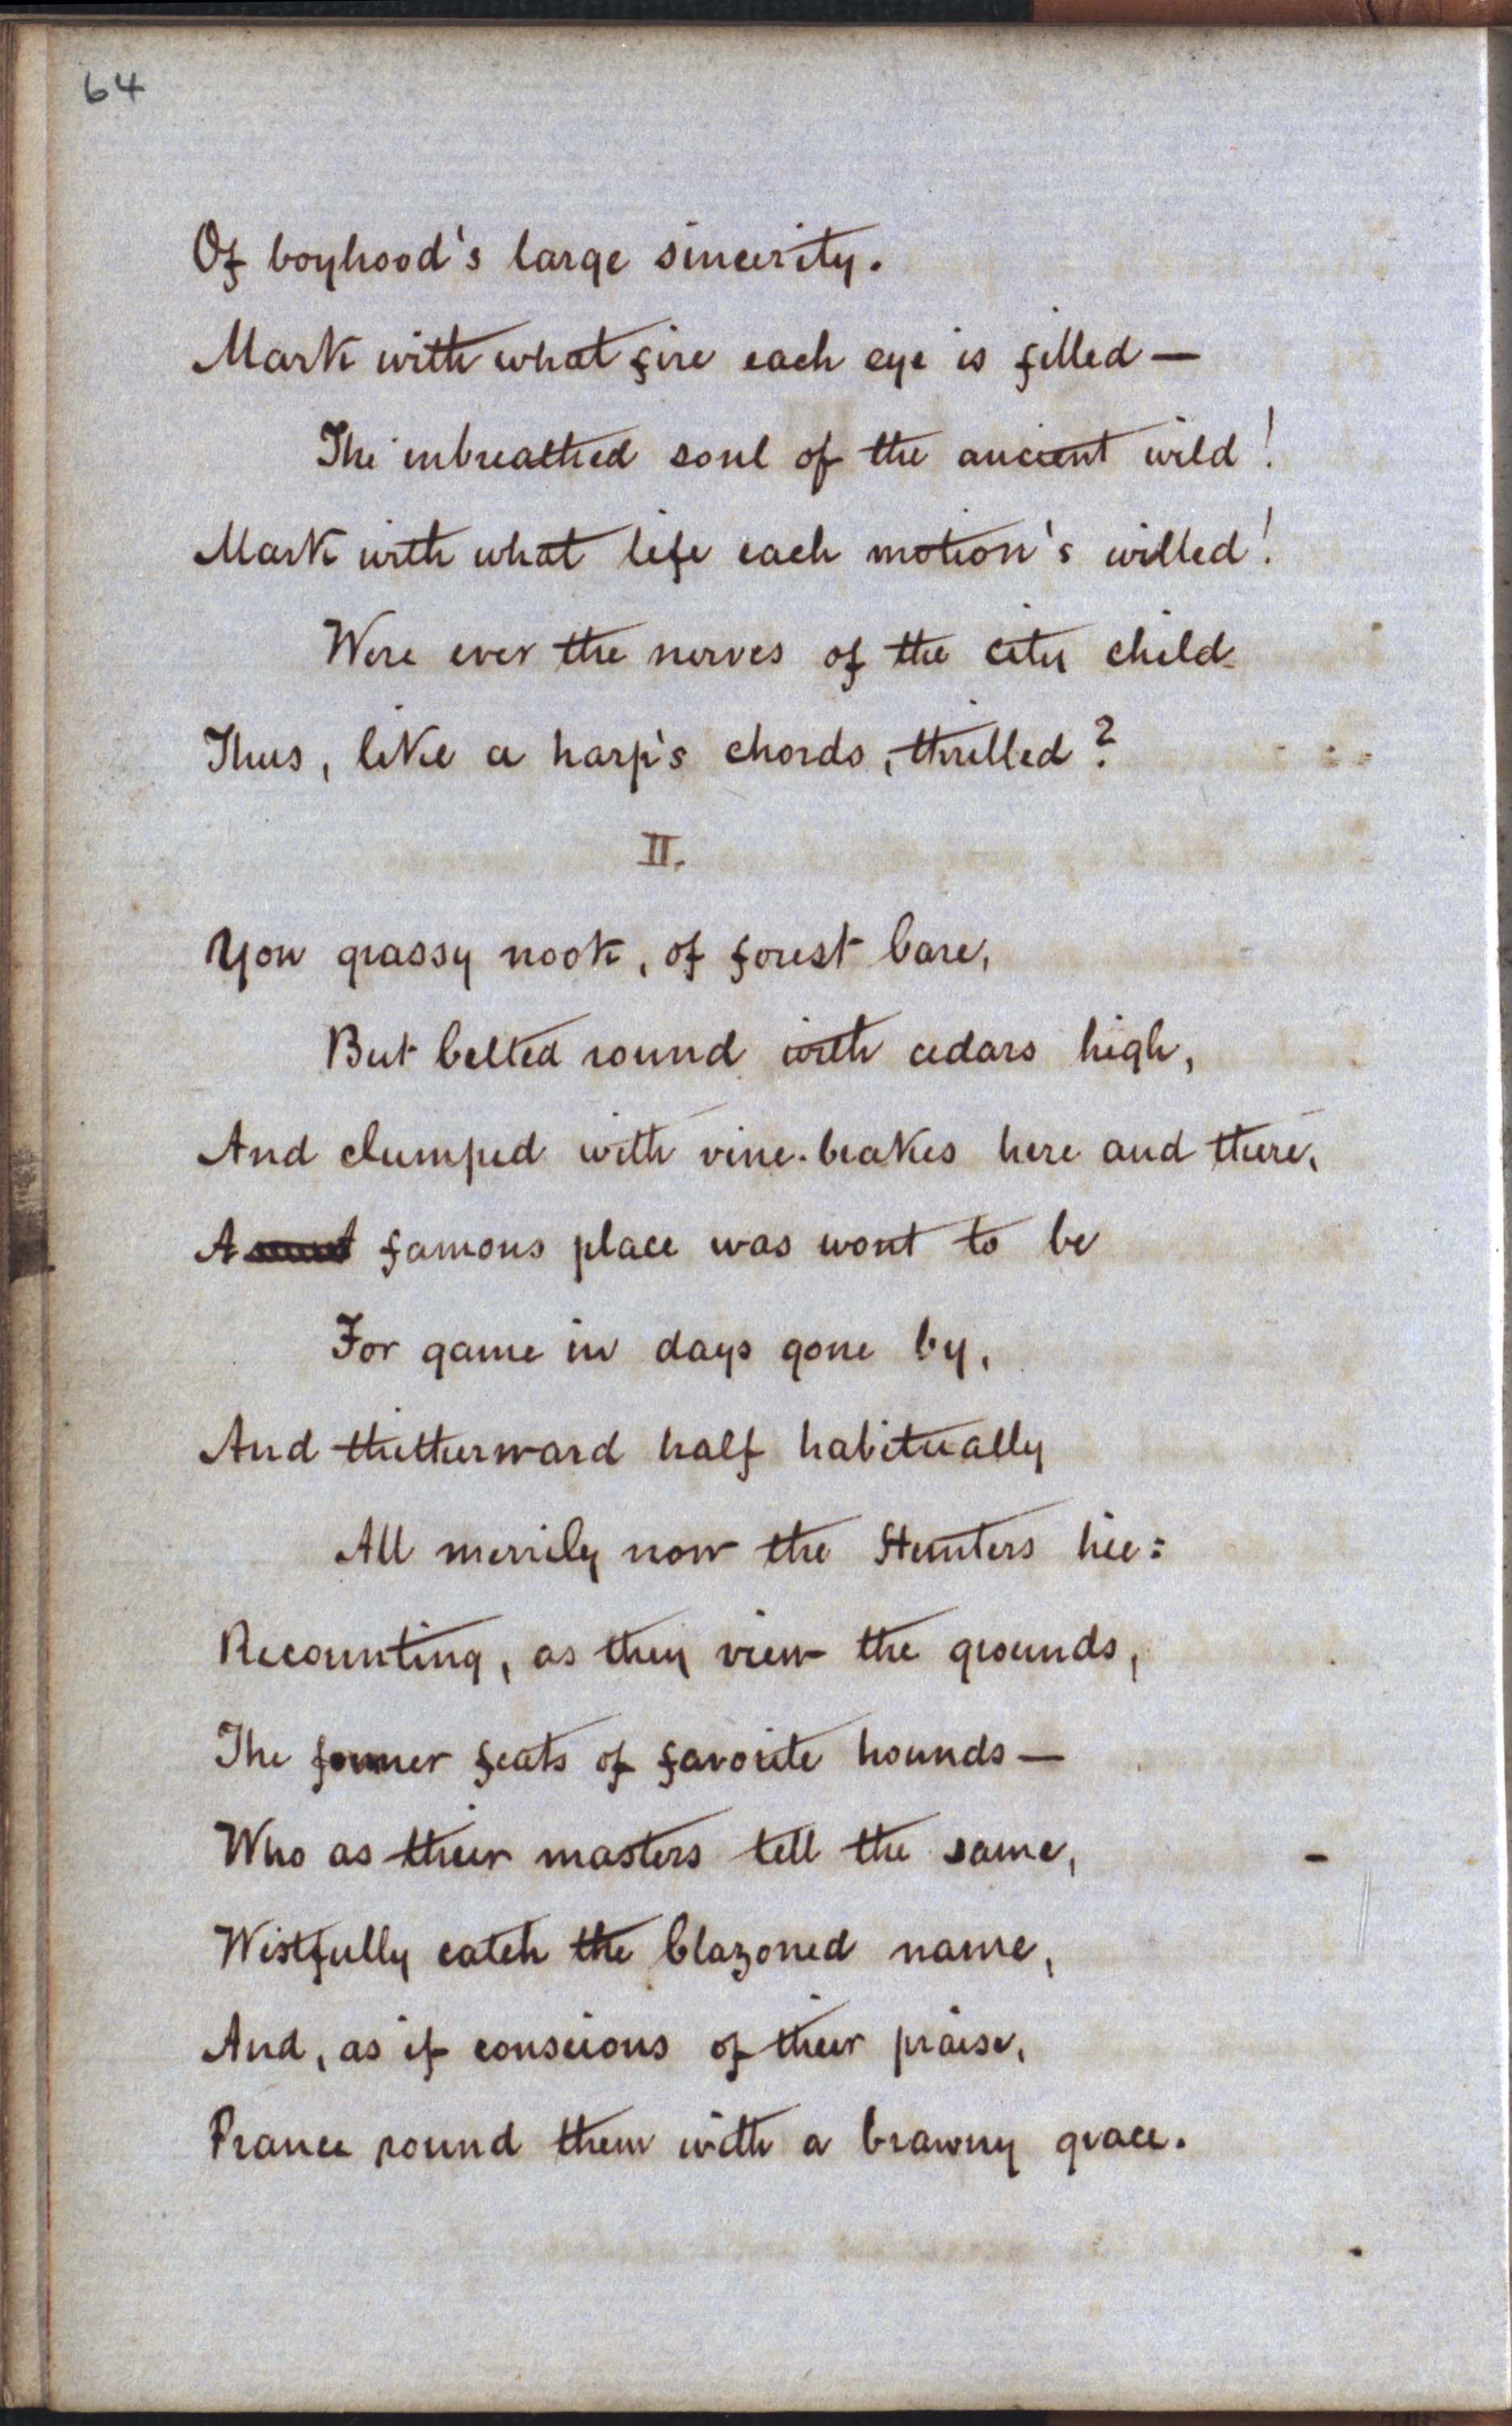 64
Of boyhood's large sincerity.
Mark with what fire each eye is filled—
The inbreathed soul of the ancient wild!
Mark with what life each motion's willed!
Were ever the nerves of the city child
Thus, like a harp's chords, thrilled?
II.
Yon grassy nook, of forest bare,
But belted round with cedars high,
And clumped with vine-brakes here and there,
A famous place was wont to be
For game in days gone by,
And thitherward half habitually
All merrily now the Hunters hie:
Recounting, as they view the grounds,
The former feats of favorite hounds—
Who as their masters tell the same,
Wistfully catch the blazoned name,
And, as if conscious of their praise,
Prance round them with a brawny grace.